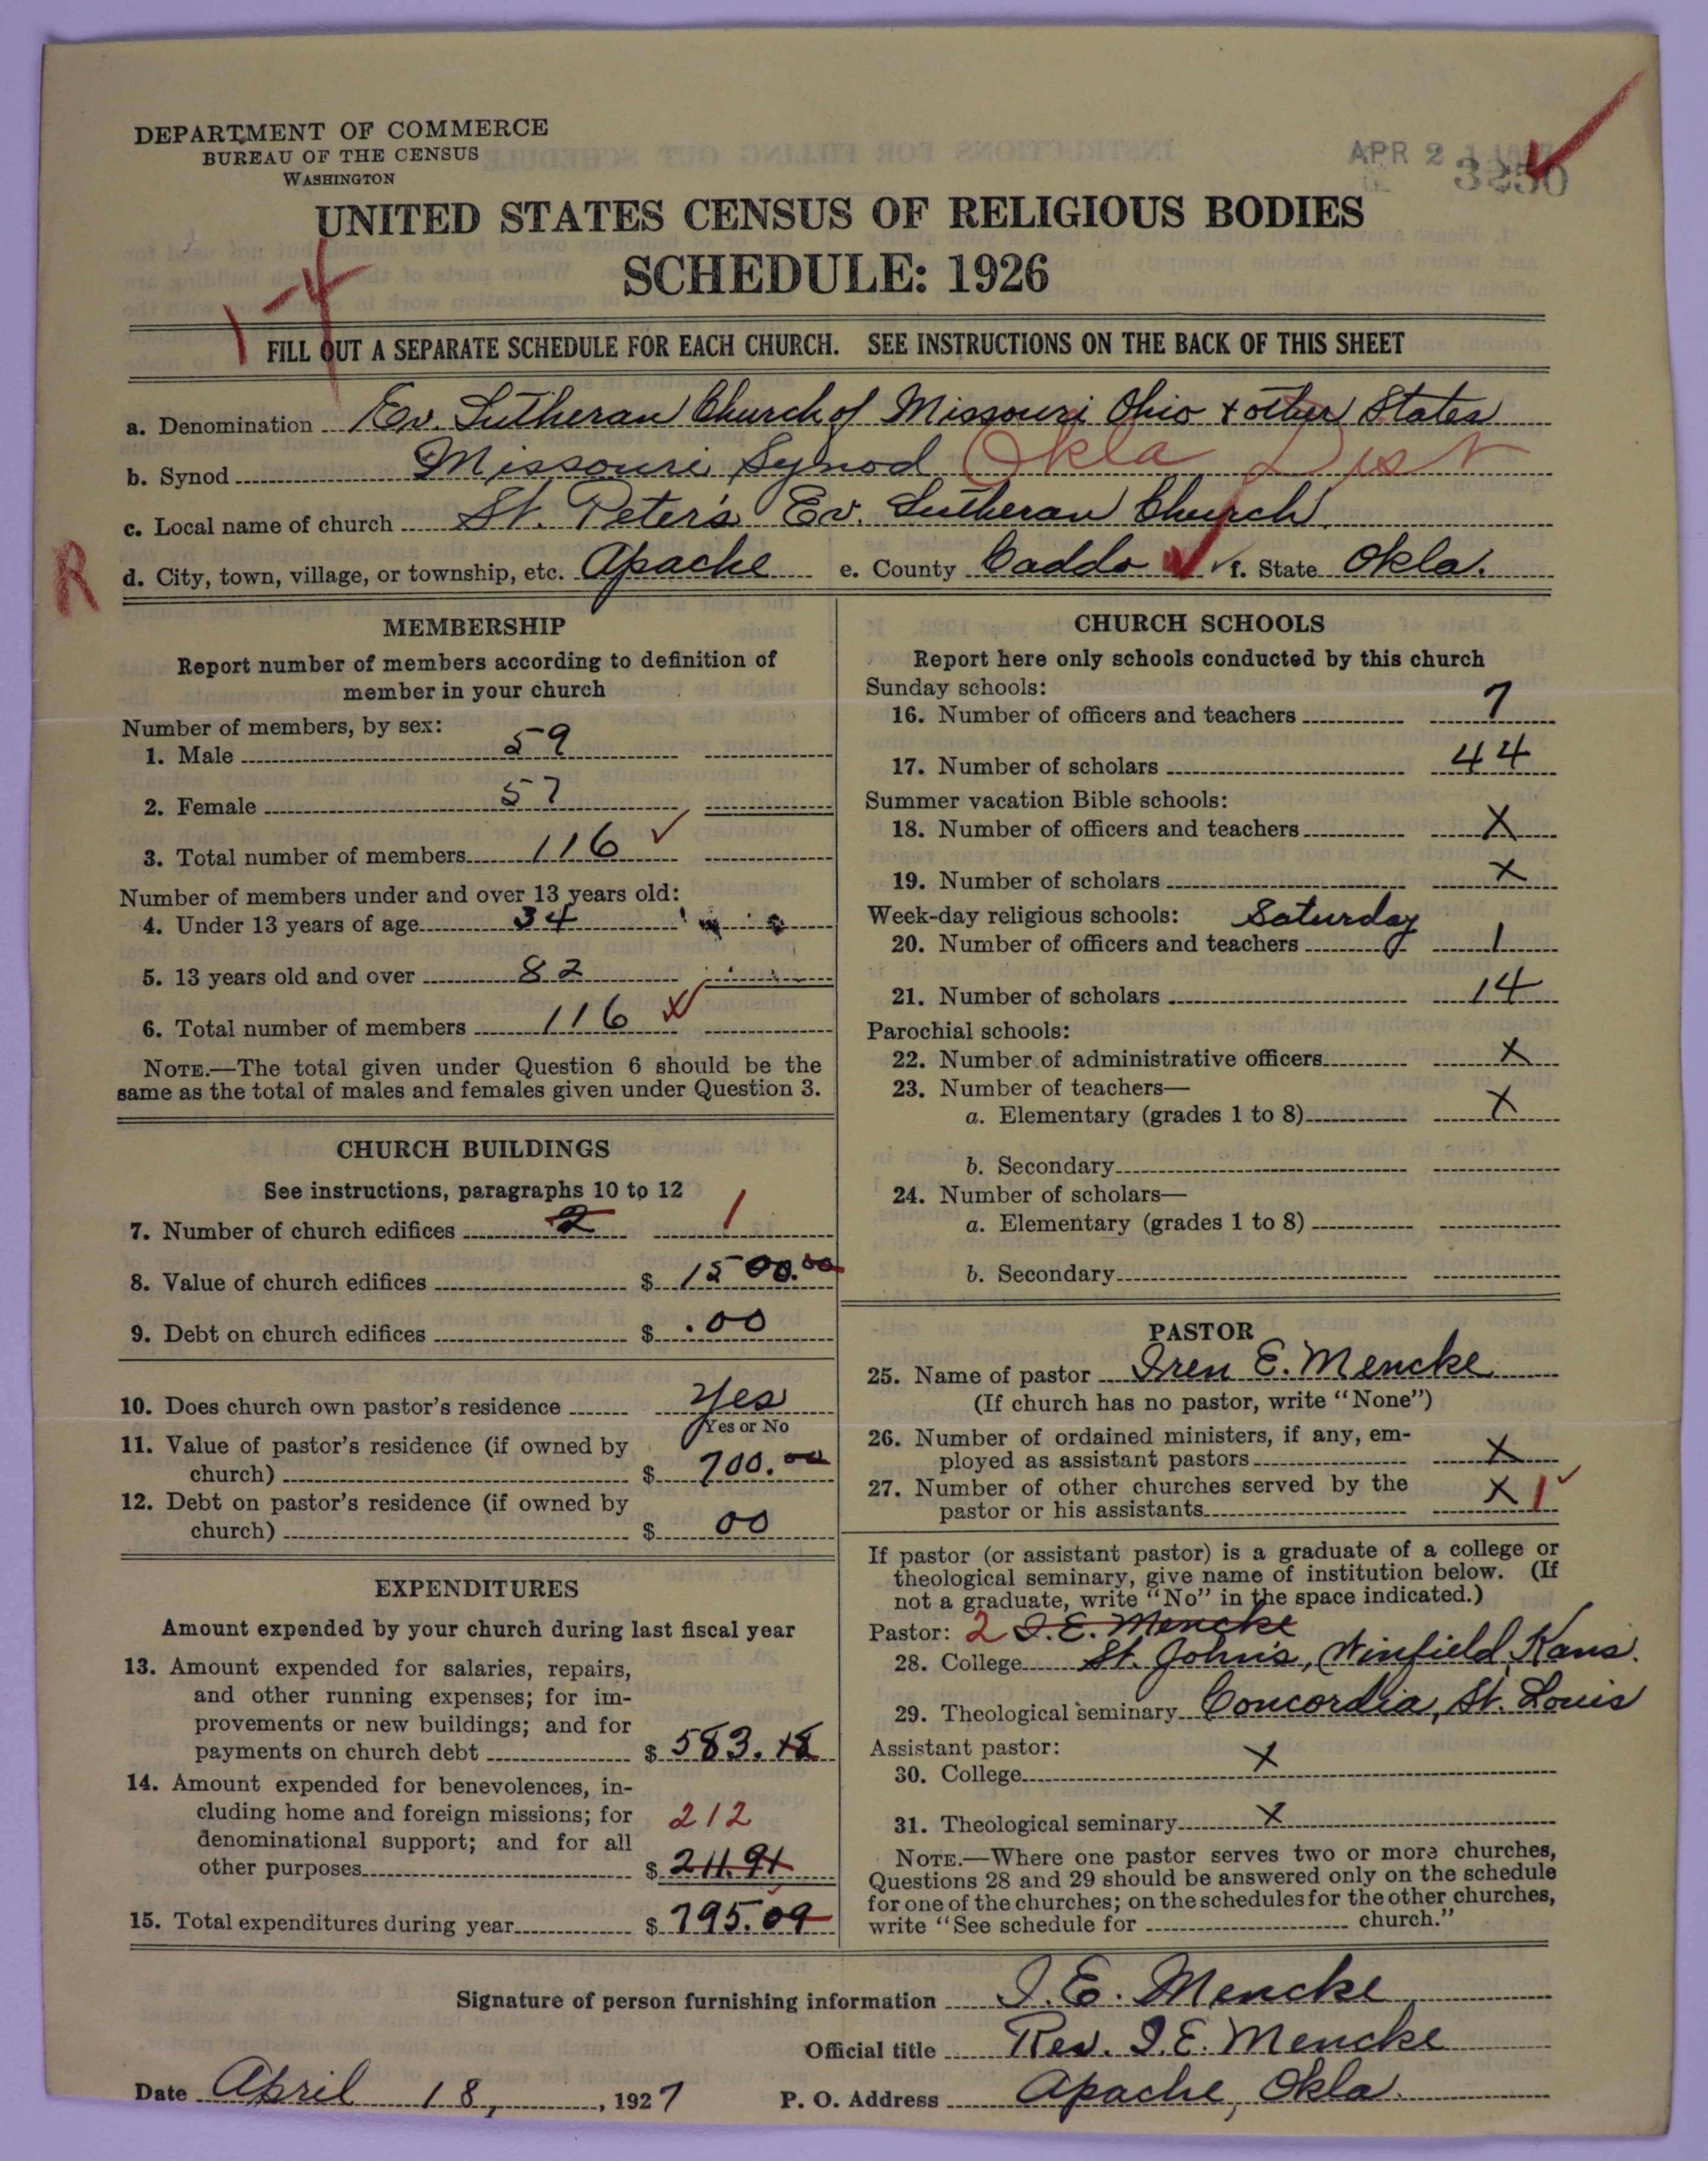 DEPARTMENT OF COMMERCE
BUREAU OF THE CENSUS
WASHINGTON
APR 2
3250
UNITED STATES CENSUS OF RELIGIOUS BODIES
SCHEDULE: 1926
1-4
FILL OUT A SEPARATE SCHEDULE FOR EACH CHURCH. SEE INSTRUCTIONS ON THE BACK OF THIS SHEET
a. Denomination Ev. Lutheran Church of Missouri Ohio + other States
b. Synod Missouri Synod Okla Dist
c. Local name of church St. Peter's Ev. Lutheran Church
R
d. City, town, village, or township, etc. Apache e. County Caddo f. State Okla.
MEMBERSHIP
Report number of members according to definition of
member in your church
Number of members, by sex:
1. Male 59
2. Female 57
3. Total number of members 116
Number of members under and over 13 years old:
4. Under 13 years of age 34
5. 13 years old and over 82
6. Total number of members 116
NOTE.—The total given under Question 6 should be the
same as the total of males and females given under Question 3.
CHURCH BUILDINGS
See instructions, paragraphs 10 to 12
7. Number of church edifices 2 1
8. Value of church edifices $ 1500.00
9. Debt on church edifices $ .00
10. Does church own pastor's residence Yes
Yes or No
11. Value of pastor's residence (if owned by
church) $ 700.00
12. Debt on pastor's residence (if owned by
church) $ 00
EXPENDITURES
Amount expended by your church during last fiscal year
13. Amount expended for salaries, repairs,
and other running expenses; for im-
provements or new buildings; and for
payments on church debt $ 583.18
14. Amount expended for benevolences, in-
cluding home and foreign missions; for 212
denominational support; and for all
other purposes $ 211.91
15. Total expenditures during year $ 795.09
CHURCH SCHOOLS
Report here only schools conducted by this church
Sunday schools:
16. Number of officers and teachers 7
17. Number of scholars 44
Summer vacation Bible schools:
18. Number of officers and teachers X
19. Number of scholars X
Week-day religious schools: Saturday
20. Number of officers and teachers 1
21. Number of scholars 14
Parochial schools:
22. Number of administrative officers X
23. Number of teachers—
a. Elementary (grades 1 to 8) X
b. Secondary
24. Number of scholars—
a. Elementary (grades 1 to 8)
b. Secondary
PASTOR
25. Name of pastor Iren E. Mencke
(If church has no pastor, write "None")
26. Number of ordained ministers, if any, em-
ployed as assistant pastors X
27. Number of other churches served by the
pastor or his assistants X 1
If pastor (or assistant pastor) is a graduate of a college or
theological seminary, give name of institution below. (If
not a graduate, write "No" in the space indicated.)
Pastor: 2 I. E. Mencke
28. College St. John's, Winfield, Kans.
29. Theological seminary Concordia, St. Louis
Assistant pastor:
30. College X
31. Theological seminary X
NOTE.—Where one pastor serves two or more churches,
Questions 28 and 29 should be answered only on the schedule
for one of the churches; on the schedules for the other churches,
write "See schedule for church."
Signature of person furnishing information I. E. Mencke
Official title Rev. I. E. Mencke
Date April 18, 1927 P. O. Address Apache, Okla.